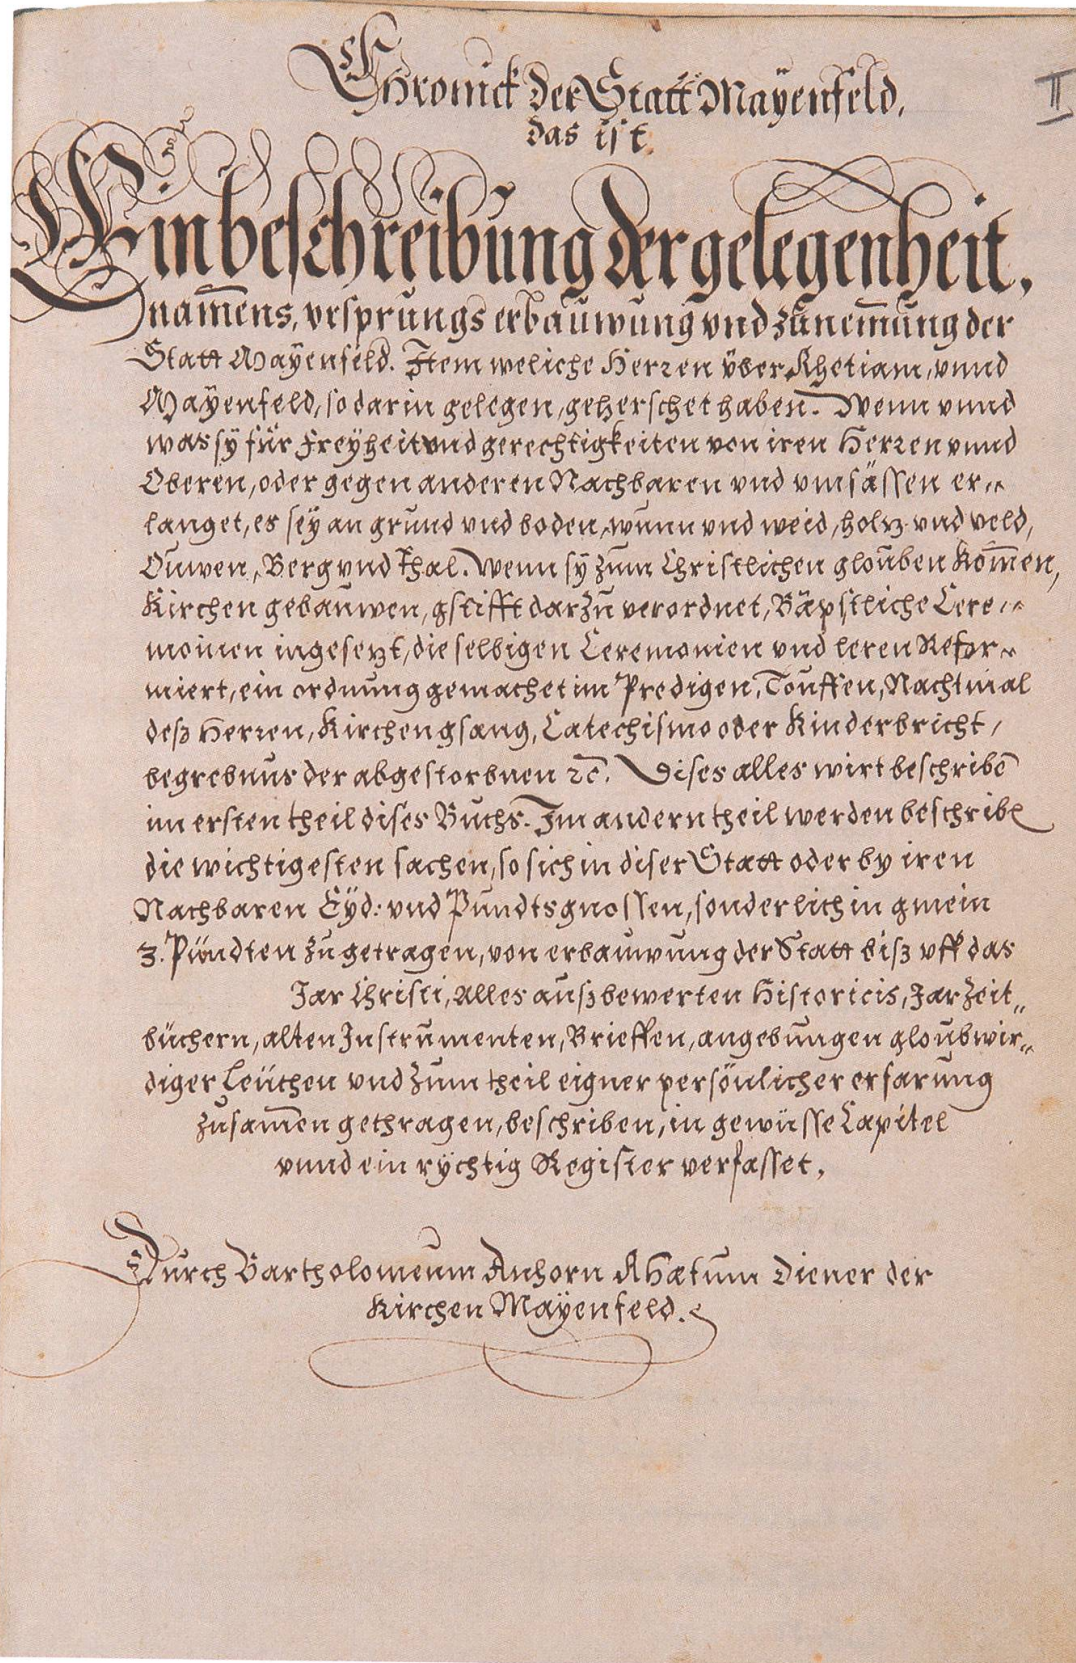 Chronick der Statt Mayenfeld,
II
das ist.
Ein beschreibung der gelegenheit,
namens, ursprungs erbauwung vnd zunemung der
Statt Mayenfeld. Item weliche Herren über Rhetiam, vnnd
Mayenfeld, so darin gelegen, geherschet haben. Wenn vnnd
was sÿ für Freÿheit vnd gerechtigkeiten von iren Herren vnnd
Oberen, oder gegen anderen Nachbaren vnd vmsässen er„
langet, es seÿ an grund vnd boden, wunn vnd weid, holtz vnd veld,
Ouwen, Berg vnd Thal. Wenn sÿ zum Christlichen glouben komen,
Kirchen gebauwen, gstifft darzu verordnet, Bäpstliche Cere„
monien ingesetzt, die selbigen Ceremonien vnd leren Refor„
miert, ein ordnung gemachet im Predigen, Touffen, Nachtmal
deß Herren, Kirchengsang, Catechismo oder Kinderbricht,
begrebnus der abgestorbnen ꝛc. Dises alles wirt beschribē
im ersten theil dises Buchs. Im andern theil werden beschribē
die wichtigesten sachen, so sich in diser Statt oder by iren
Nachbaren Eÿd: vnd Pundtsgnossen, sonderlich in gmein
3. Pündten zugetragen, von erbauwung der Statt biß vff das
Jar Christi, Alles auß bewerten Historicis, Jarzeit„
büchern, alten Instrumenten, Brieffen, angebungen gloubwir„
diger Leüthen vnd zum theil eigner persönlicher erfarung
zusamen gethragen, beschriben, in gewüsse Capitel
vnnd ein rÿchtig Register verfasset,
Durch Bartholomeum Anhorn Rhætum Diener der
Kirchen Mayenfeld.